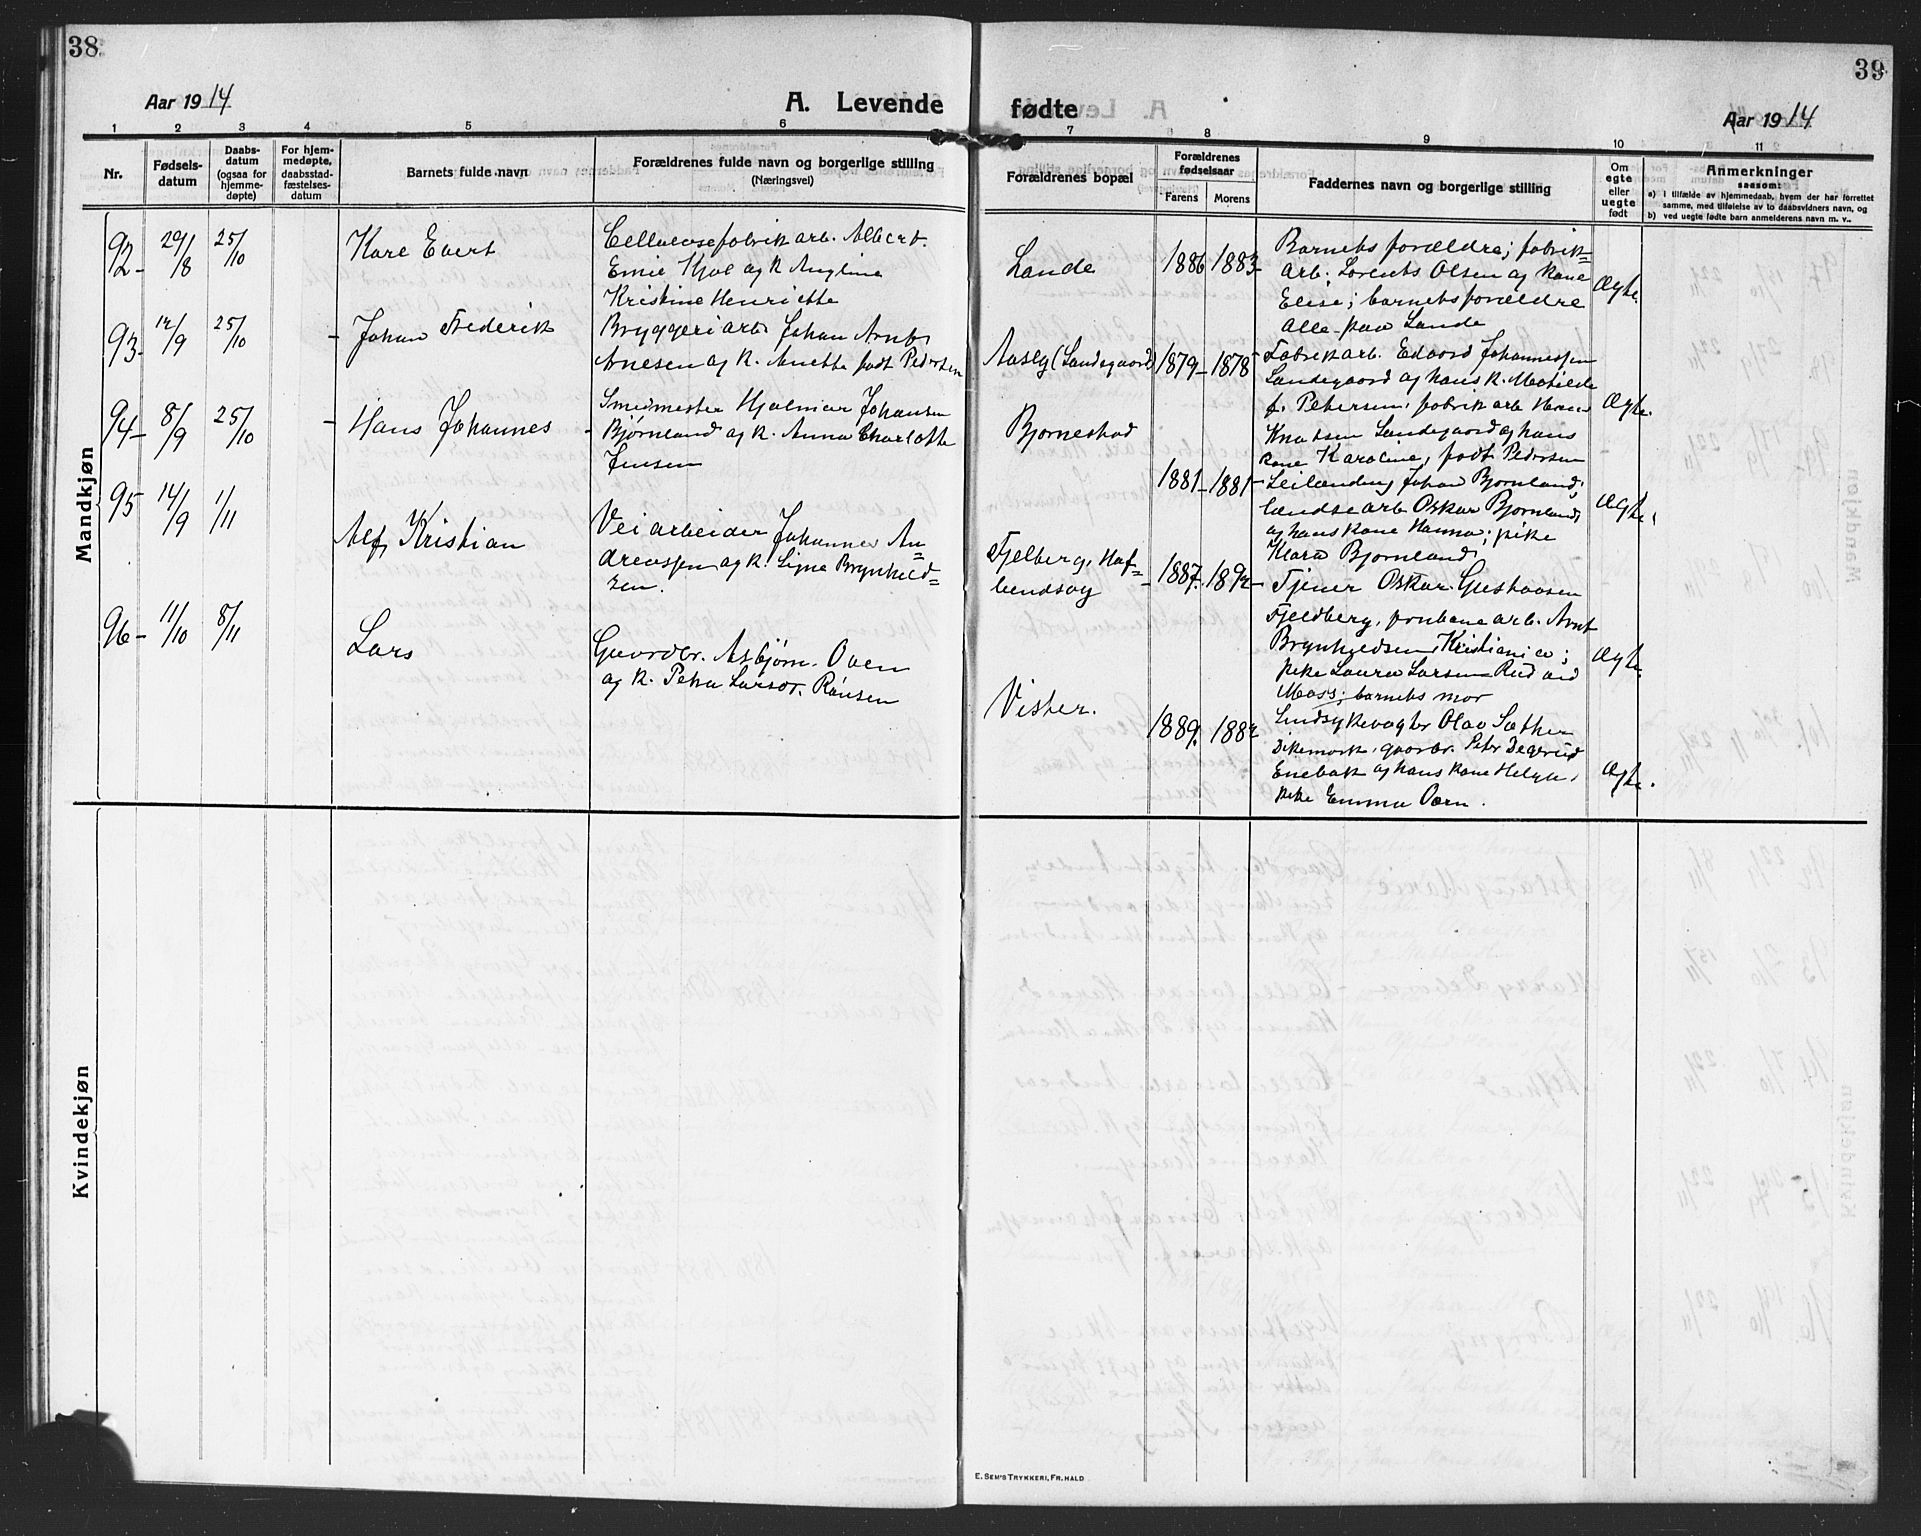 38
39
Aar 1914
A. Levende
fødte
Aar 1914
1 2 3 4 5 6 7 8 9 10 11
Nr.
Fødsels-
datum
Daabs-
datum
(ogsaa for
hjemme-
døpte)
For hjem-
medøpte,
daabsstad-
fæstelses-
datum
Barnets fulde navn
Forældrenes fulde navn og borgerlige stilling
(Næringsvei)
Forældrenes bopæl
Forældrenes
fødselsaar
Farens
Morens
Faddernes navn og borgerlige stilling
Om
egte
eller
uegte
født
Anmerkninger
saasom:
a) i tilfælde av hjemmedaab, hvem der har forrettet
samme, med tilføielse av to daabsvidners navn, og
b) ved uegte fødte barn anmelderens navn m. v..
Mandkjøn
92- 20/8 25/10
Kare Evert
Cellulosefabrikarb. Albert
Emil Kjøl og k. Angline
Kristine Henriette
Lande
1886 1883-
Barnets forældre; fabrik-
arb. Lorents Olsen og kone
Elise; barnets forældre
Alle paa Lande
Ægte.
93- 12/9 25/10 -
Johan Frederik
Bryggeriarb. Johan Arnt
Arnesen og k. Anette født Pedersen
Aasly (Landegaard)
1879- 1878
Fabrikarb. Edvard Johannessen
Landegaard og hans k. Matilde
f. Petersen, fabrikarb Hans
Knutsen Landegaard og hans
kone Karoline, født Pedersen
Ægte.
94- 8/9 25/10 -
Hans Johannes -
Smedmester Hjalmar Johansen
Bjørnland og k. Anna Charlotte
Jensen
Bjørnestad
1881- 1881-
Leilænding Johan Bjørnland;
landsearb Oskar Bjørnland
og hans kone Hanna; pike
Klara Bjørnland
Ægte.
95 14/9 1/11
Alf Kristian
Veiarbeider Johannes An-
dreassen og k. Signe Brynhild-
sen.
Fjelberg, Haf-
lundsøy
1887. 1892-
Tjener Oskar Gustavsen
Fjeldberg, forbane arb. Arnt
Brynhildsen, Kristiania;
pike Laura Larsen Rud ved
Moss; barnets mor
Ægte.
96- 11/10 8/11
Lars
Gaardbr. Asbjørn Oven
og k. Petra Larsdr. Rønsen
Vister.
1889. 1882
Sindsykevogter Olav Sæther
Dikemark, gaardbr. Peter Degerud
Enebak og hans kone Helga,
pike Emma Oven.
Ægte.
Kvindekjøn
E. SEM'S TRYKKERI, FR. HALD